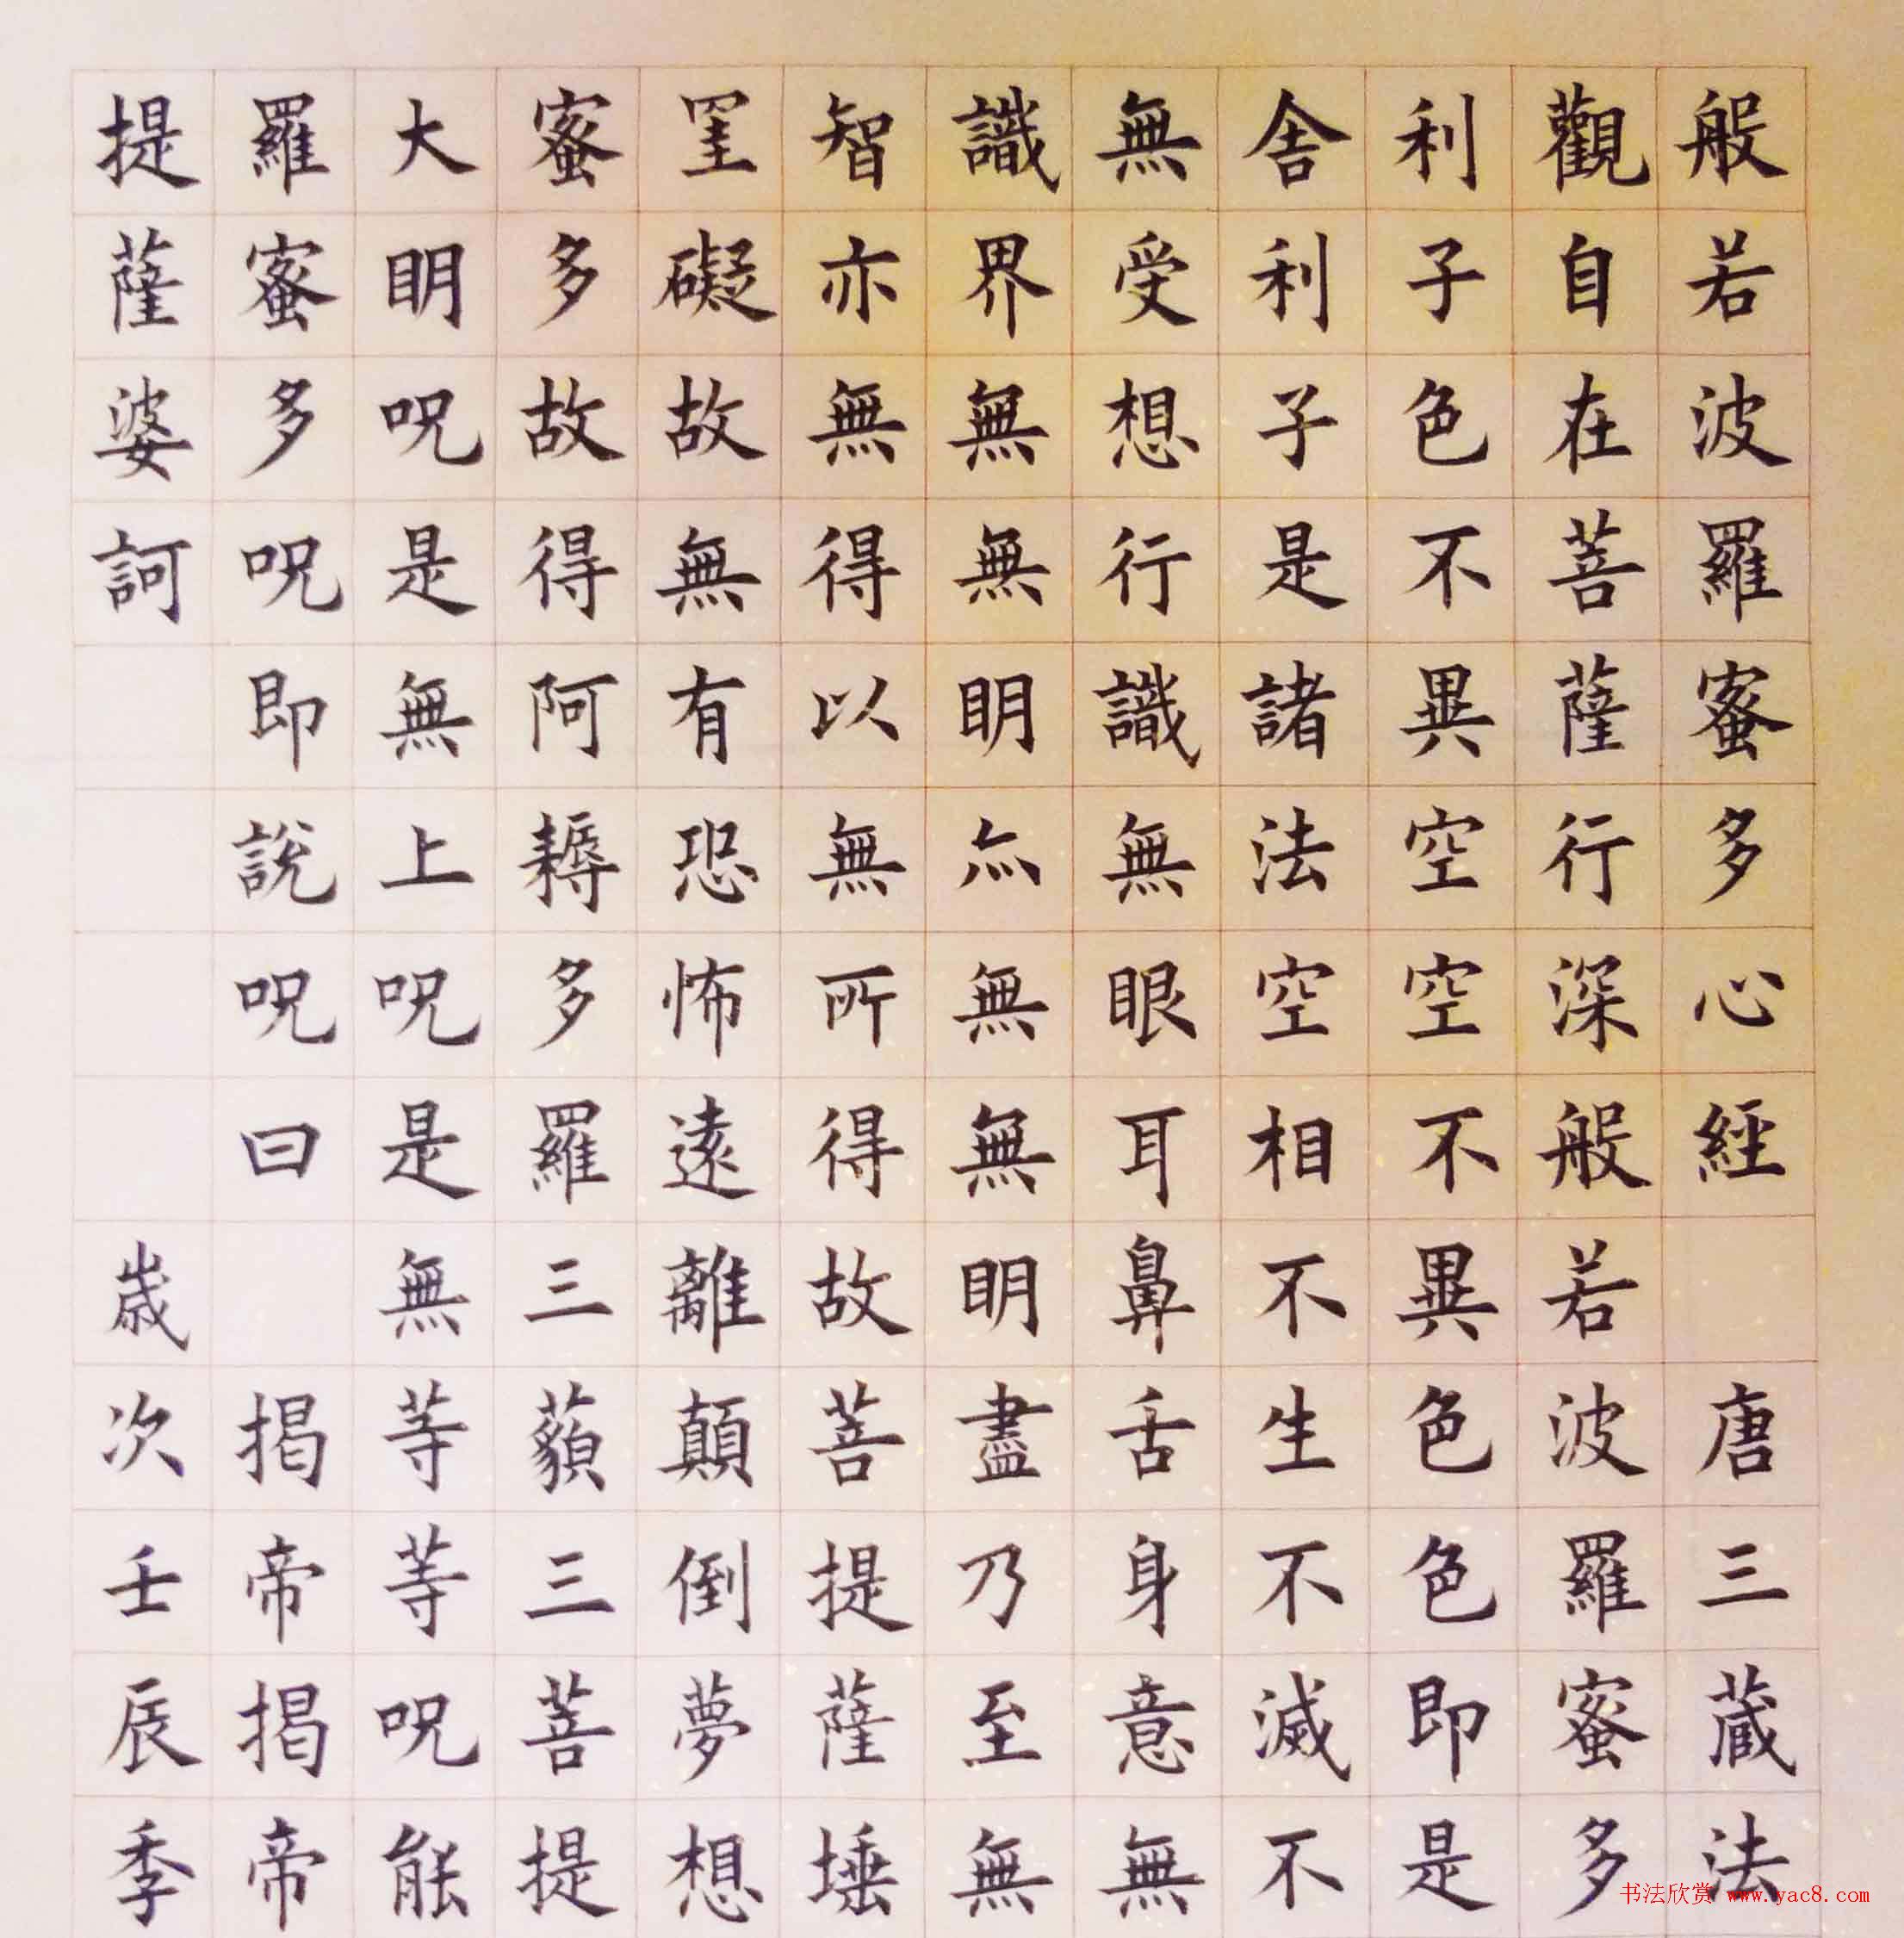 般若波羅蜜多心經 唐三蔵法
觀自在菩薩行深般若波羅蜜多
利子色不異空空不異色色即是
舎利子是諸法空相不生不滅不
無受想行識無眼耳鼻舌身意無
識界無無眀亦無無眀盡乃至無
智亦無得以無所得故菩提薩埵
罣礙故無有恐怖遠離顛倒夢想
蜜多故得阿耨多羅三藐三菩提
大眀呪是無上呪是無等等呪能
羅蜜多呪即說呪曰 揭帝揭帝
提薩婆訶 歲次壬辰季
书法欣赏 www.yac8.com